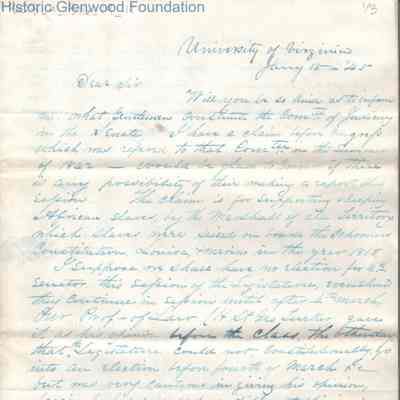 Historic Glenwood Foundation
University of Virginia
Jany 15 - '45
Dear Sir
Will you be so kind as to inform
me what Gentlemen constitute the Comtt of Judiciary
in the Senate I have a claim before Congress
which was referred to that Comttee in the session
of 1842 - would
is any possibility of their making a report this
session The claim is for supporting sleeping
African slaves, by the Marshall of the Territory
which slaves were seized on board the Schooners
Constitution, Louisa, & Merino in the year 1818
I suppose we shall have no election for U.S.
Senator this session of the Legislature, unless
they continue in session until after 4th March
Our Prof - of Law gave
it as his before the class, the other day
that the Legislature could not constitutionally go
into an election before fourth of March &c
but was very cautious in giving his opinion,